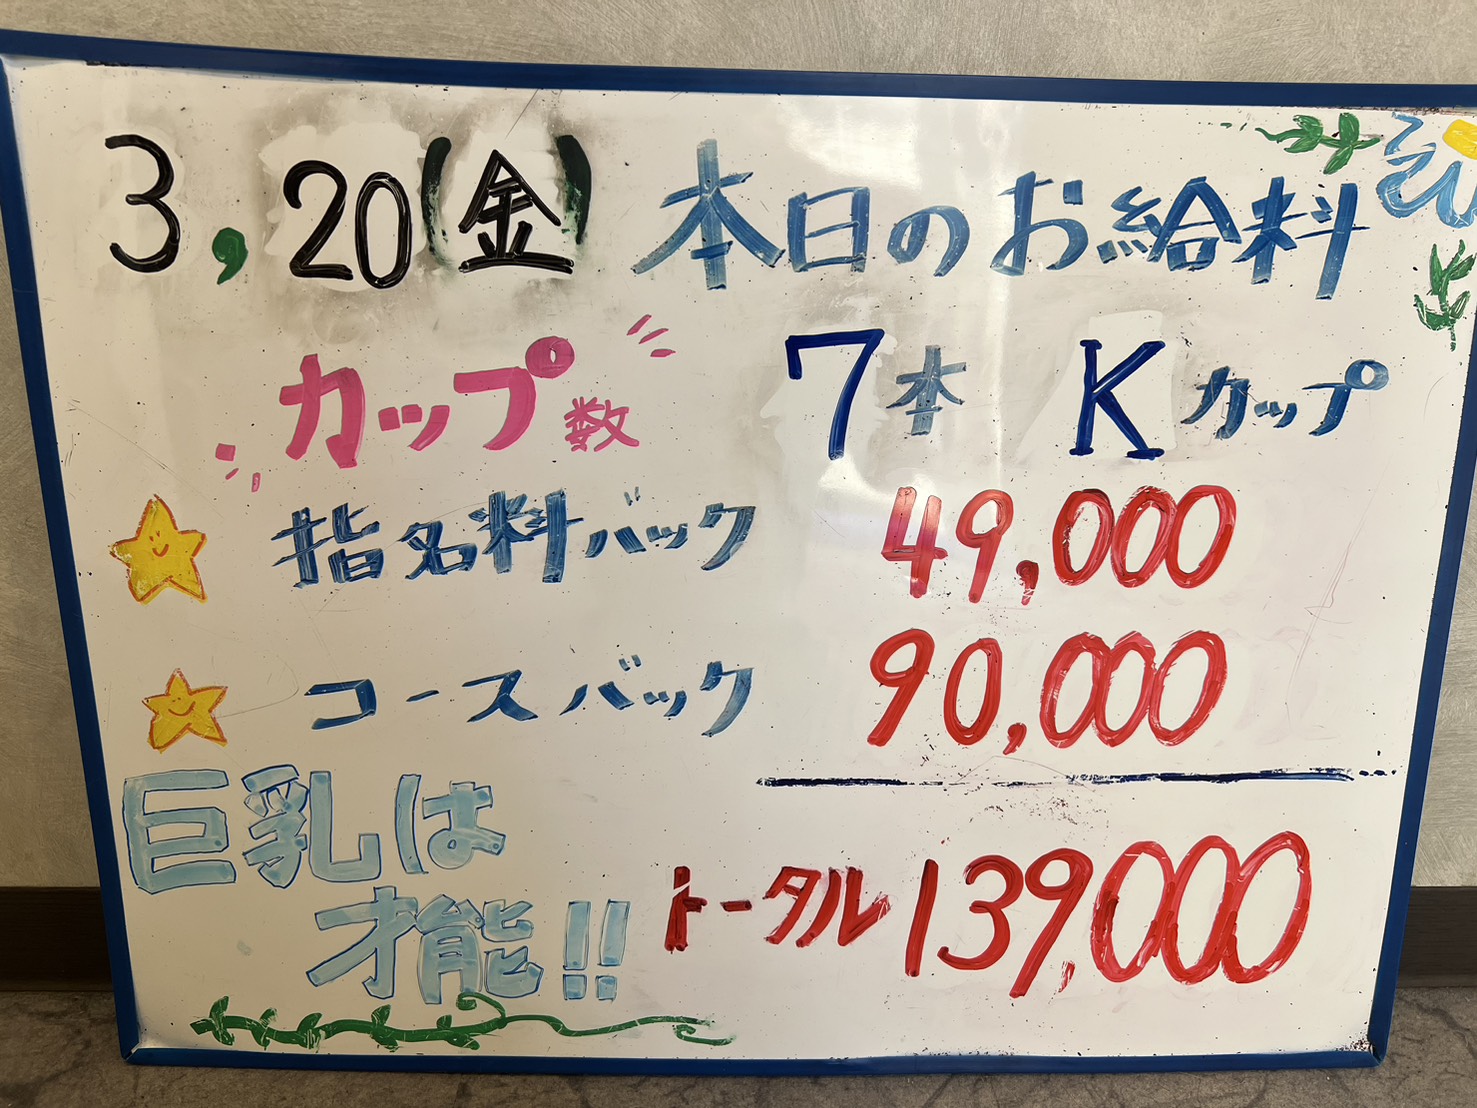 3,20(金) 本日のお給料
カップ数 7本 Kカップ
指名料バック 49,000
コースバック 90,000
巨乳は
才能!!
トータル 139,000